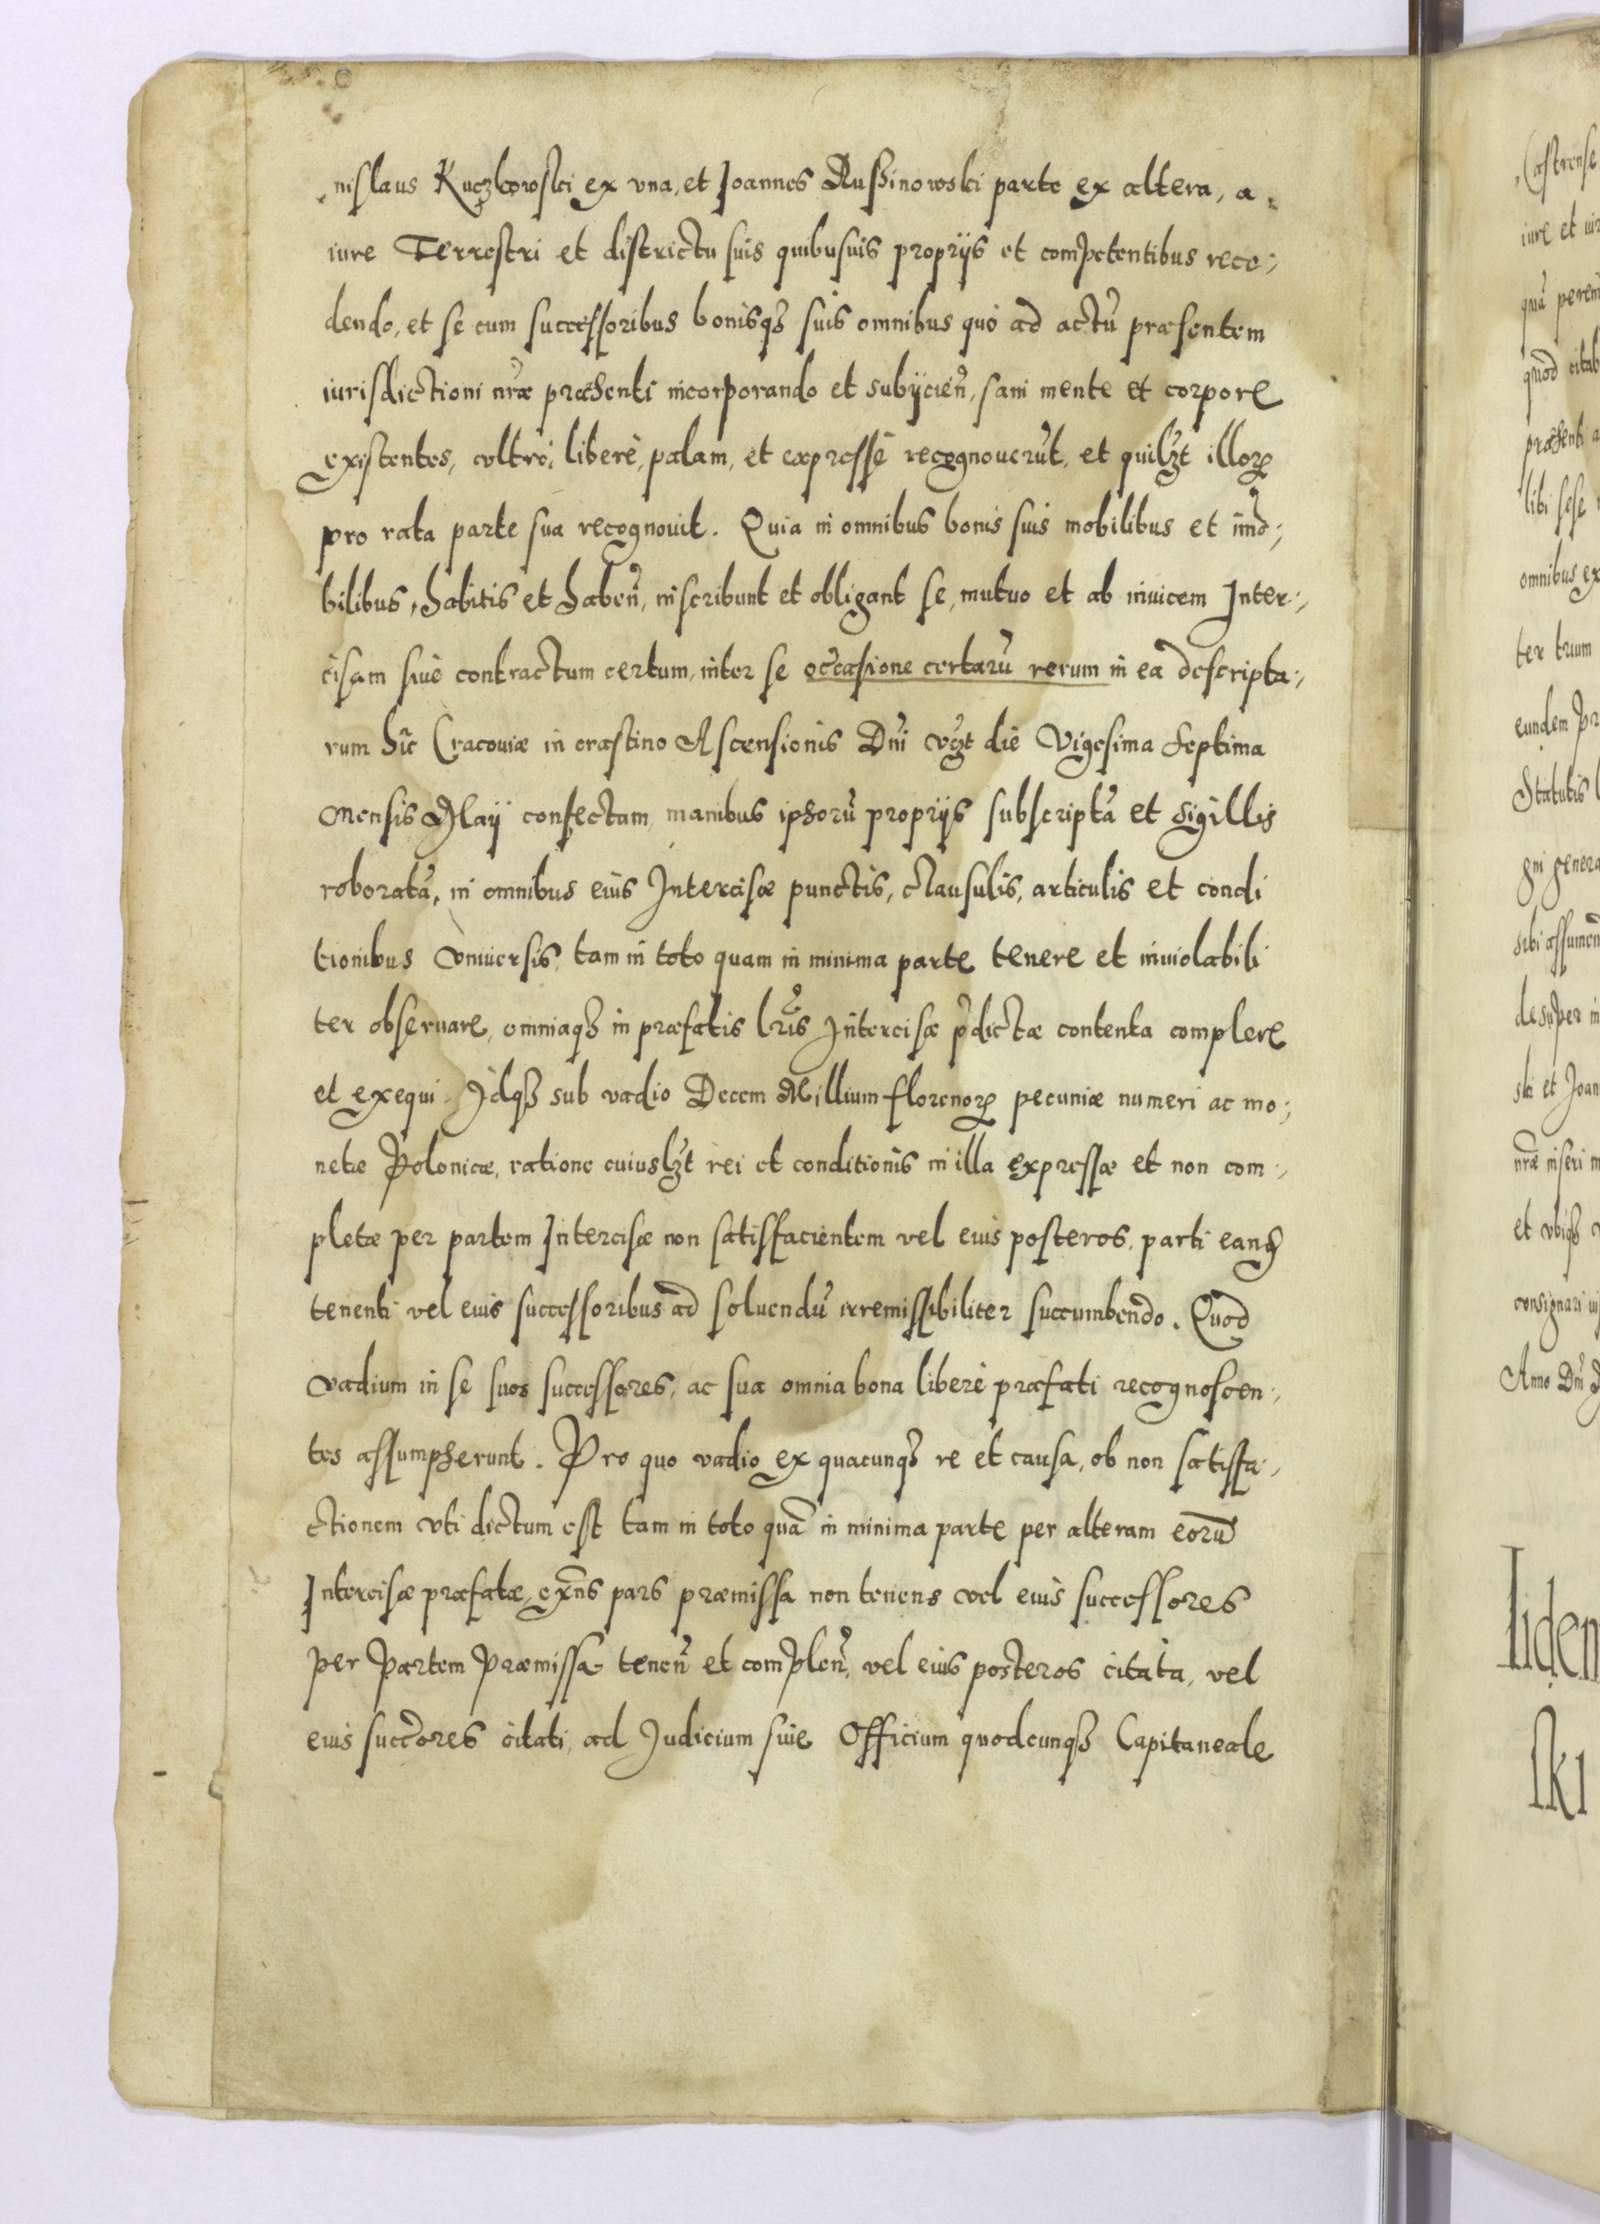 nislaus Kuczkowski ex vna, et Joannes Russinowski parte ex altera, a
iure Terrestri et districtu suis quibusuis proprijs et competentibus rece,
dendo, et se cum successoribus bonisqꝫ suis omnibus quò ad actũ præsentem
iurisdictioni nr̃æ præsenti incorporando et subijcieñ, sani mente et corpore
existentes, vltrò, liberè, palam, et expressè recognouerũt, et quilꝫt illoꝝ
pro rata parte sua recognouit. Quia in omnibus bonis suis mobilibus et im̃o,
bilibus, habitis et habeñ, inscribunt et obligant se, mutuo et ab inuicem Inter,
cisam siuè contractum certum, inter se occasione certarũ rerum in ea descripta,
rum hîc Cracouiæ in crastino Ascensionis Dñi vꝫt die Vigesima Septima
Mensis Maij confectam, manibus ipsorũ proprijs subscriptã et sigillis
roboratã, in omnibus eius Intercisæ punctis, clausulis, articulis et condi
tionibus vniuersis, tam in toto quam in minima parte tenere et inuiolabili
ter obseruare, omniaqꝫ in præfatis lr̃is Intercisæ p̃dictæ contenta complere
et exequi. Idqꝫ sub vadio Decem Millium florenoꝝ pecuniæ numeri ac mo,
netæ Polonicæ, ratione cuiuslꝫt rei et conditionis in illa expressæ et non com,
pletæ per partem Intercisæ non satisfacientem vel eius posteros, parti eanqꝫ
tenenti vel eius successoribus ad soluendũ irremissibiliter succumbendo. Quod
vadium in se suos successores, ac sua omnia bona liberè præfati recognoscen,
tes assumpserunt. Pro quo vadio ex quacunqꝫ re et causa, ob non satisfa,
ctionem vti dictum est tam in toto quã in minima parte per alteram eorũ
Intercisæ præfatæ, ex̃ns pars præmissa non tenens vel eius successores
per Partem Præmissa teneñ et compleñ, vel eius posteros citata, vel
eius succ̃ores citati, ad Judicium siue Officium quodcunqꝫ Capitaneale